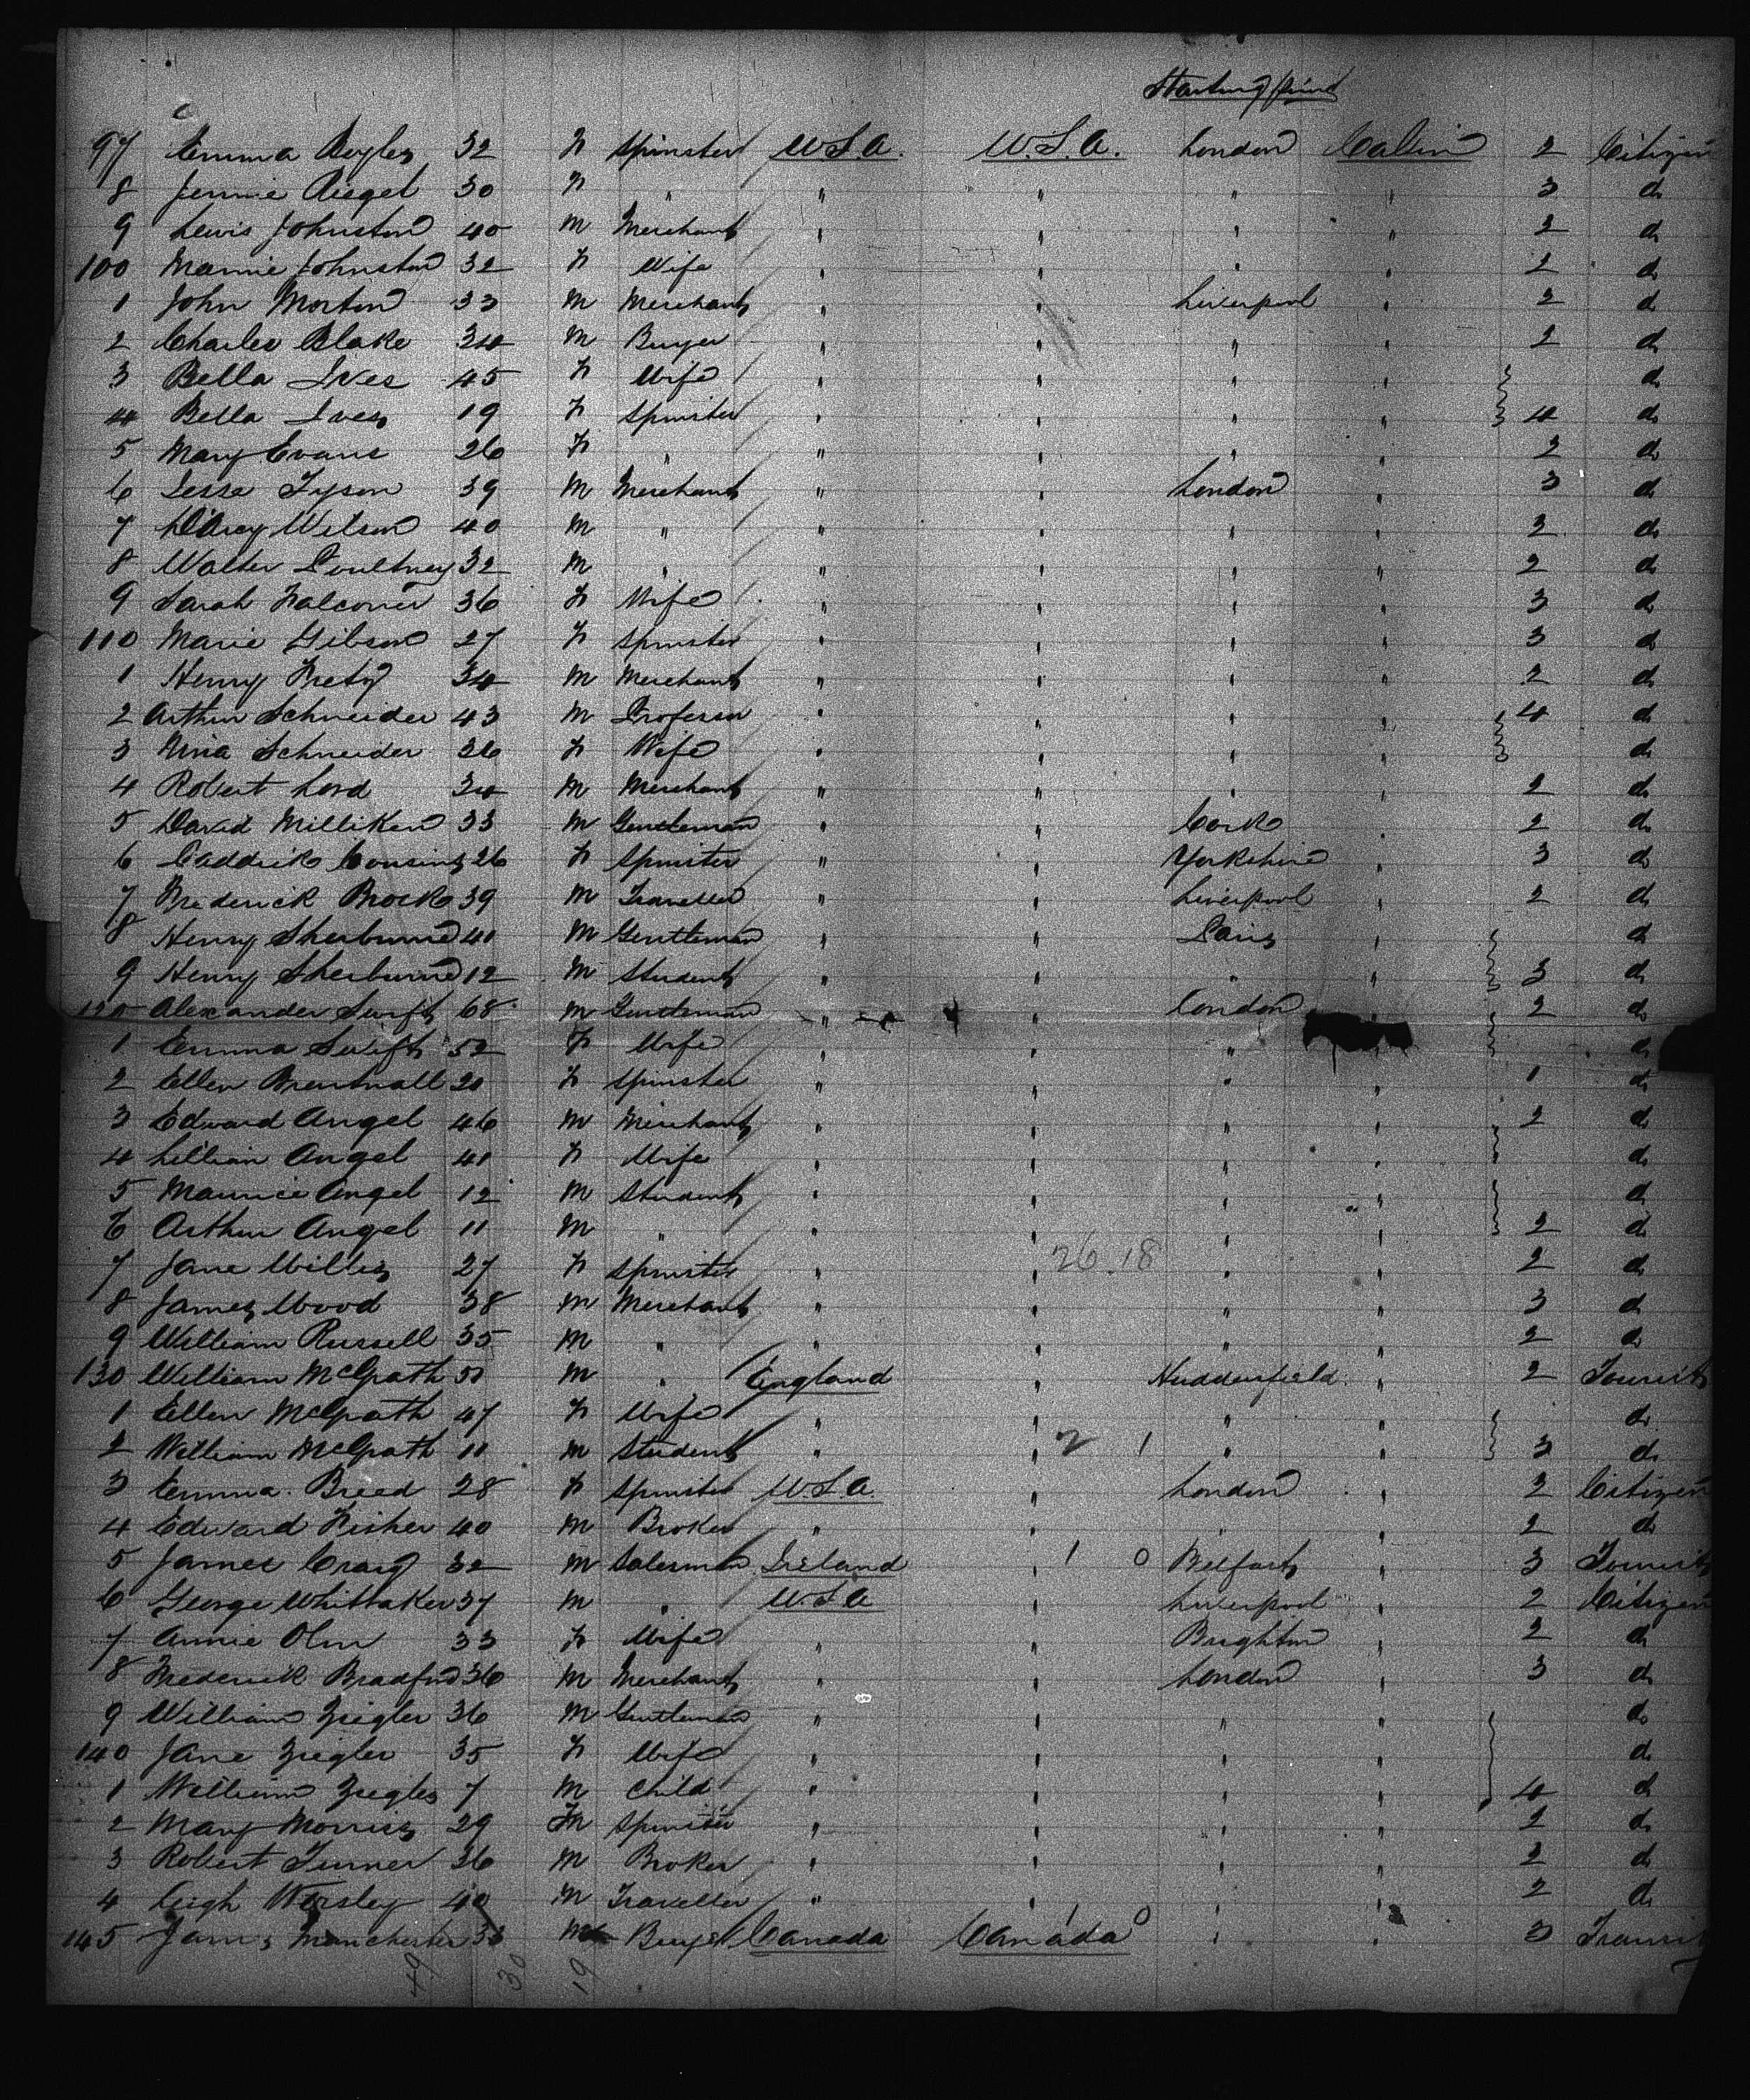 Starting point
97 Emma Boyles 32 F Spinster U.S.A. U.S.A. London Cabin 2 Citizen
8 Jennie Riegel 30 F " " " " " 3 do
9 Lewis Johnston 40 M Merchant " " " " 2 do
100 Mamie Johnston 32 F Wife " " " " 2 do
1 John Morton 33 M Merchant " " Liverpool " 2 do
2 Charles Blake 34 M Buyer " " " " 2 do
3 Bella Ives 45 F Wife " " " " do
4 Bella Ives 19 F Spinster " " " " 4 do
5 Mary Evans 26 F " " " " " 2 do
6 Jesse Tyson 39 M Merchant " " London " 3 do
7 D'Arcy Wilson 40 M " " " " " 2 do
8 Walter Poultney 32 M " " " " " 2 do
9 Sarah Falconer 36 F Wife " " " " 3 do
110 Marie Gibson 27 F Spinster " " " " 3 do
1 Henry Fretz 34 M Merchant " " " " 2 do
2 Arthur Schneider 43 M Professor " " " " 4 do
3 Nina Schneider 36 F Wife " " " " do
4 Robert Lord 34 M Merchant " " " " 2 do
5 David Milliken 33 M Gentleman " " Cork " 2 do
6 Cousins 26 F Spinster " " Yorkshire " 3 do
7 Frederick Brock 39 M Traveller " " Liverpool " 2 do
8 Henry Sherburne 41 M Gentleman " " Paris " do
9 Henry Sherburne 12 M Student " " " " 3 do
120 Alexander Swift 68 M Gentleman " " London 2 do
1 Emma Swift 52 F Wife " " " " do
2 Ellen Brentnall 20 F Spinster " " " " 1 do
3 Edward Angel 46 M Merchant " " " " 2 do
4 Lillian Angel 41 F Wife " " " " do
5 Maurice Angel 12 M Student " " " " do
6 Arthur Angel 11 M " " " " " 2 do
7 Jane Willis 27 F Spinster " 26.18 " " 2 do
8 James Wood 38 M Merchant " " " " 3 do
9 William Russell 35 M " " " " " 2 do
130 William McGrath 51 M " England " Huddersfield " 2 Tourist
1 Ellen McGrath 47 F Wife " " " " do
2 William McGrath 11 M Student " " 2 1 " " 3 do
3 Emma Breed 28 F Spinster U.S.A. " London " 2 Citizen
4 Edward Fisher 40 M Broker " " " " 2 do
5 James Craig 32 M Salesman Ireland " 1 0 Belfast " 3 Tourist
6 George Whittaker 37 M " U.S.A " Liverpool " 2 Citizen
7 Annie Olm 33 F Wife " " Brighton " 2 do
8 Frederick Bradford 36 M Merchant " " London " 3 do
9 William Ziegler 36 M Gentleman " " " " do
140 Jane Ziegler 35 F Wife " " " " do
1 William Ziegler 7 M Child " " " " 4 do
2 Mary Morris 29 F Spinster " " " " 2 do
3 Robert Turner 36 M Broker " " " " 2 do
4 Leigh Worsley 40 M Traveller " " " " 2 do
145 James Manchester 33 M Buyer Canada Canada 1 0 " " 3 Transit
49 30 19